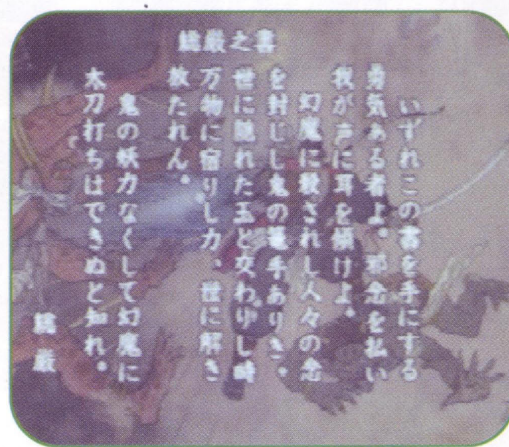 巌之書
いずれこの書を手にする
勇気ある者よ。邪念を払い
我が声に耳を傾けよ。
幻魔に殺されし人々の念
を封じし鬼の篭手ありき。
世に隠れた玉と交わりし時
万物に宿りし力、世に解き
放たれん。
鬼の妖力なくして幻魔に
太刀打ちはできぬと知れ。
巌